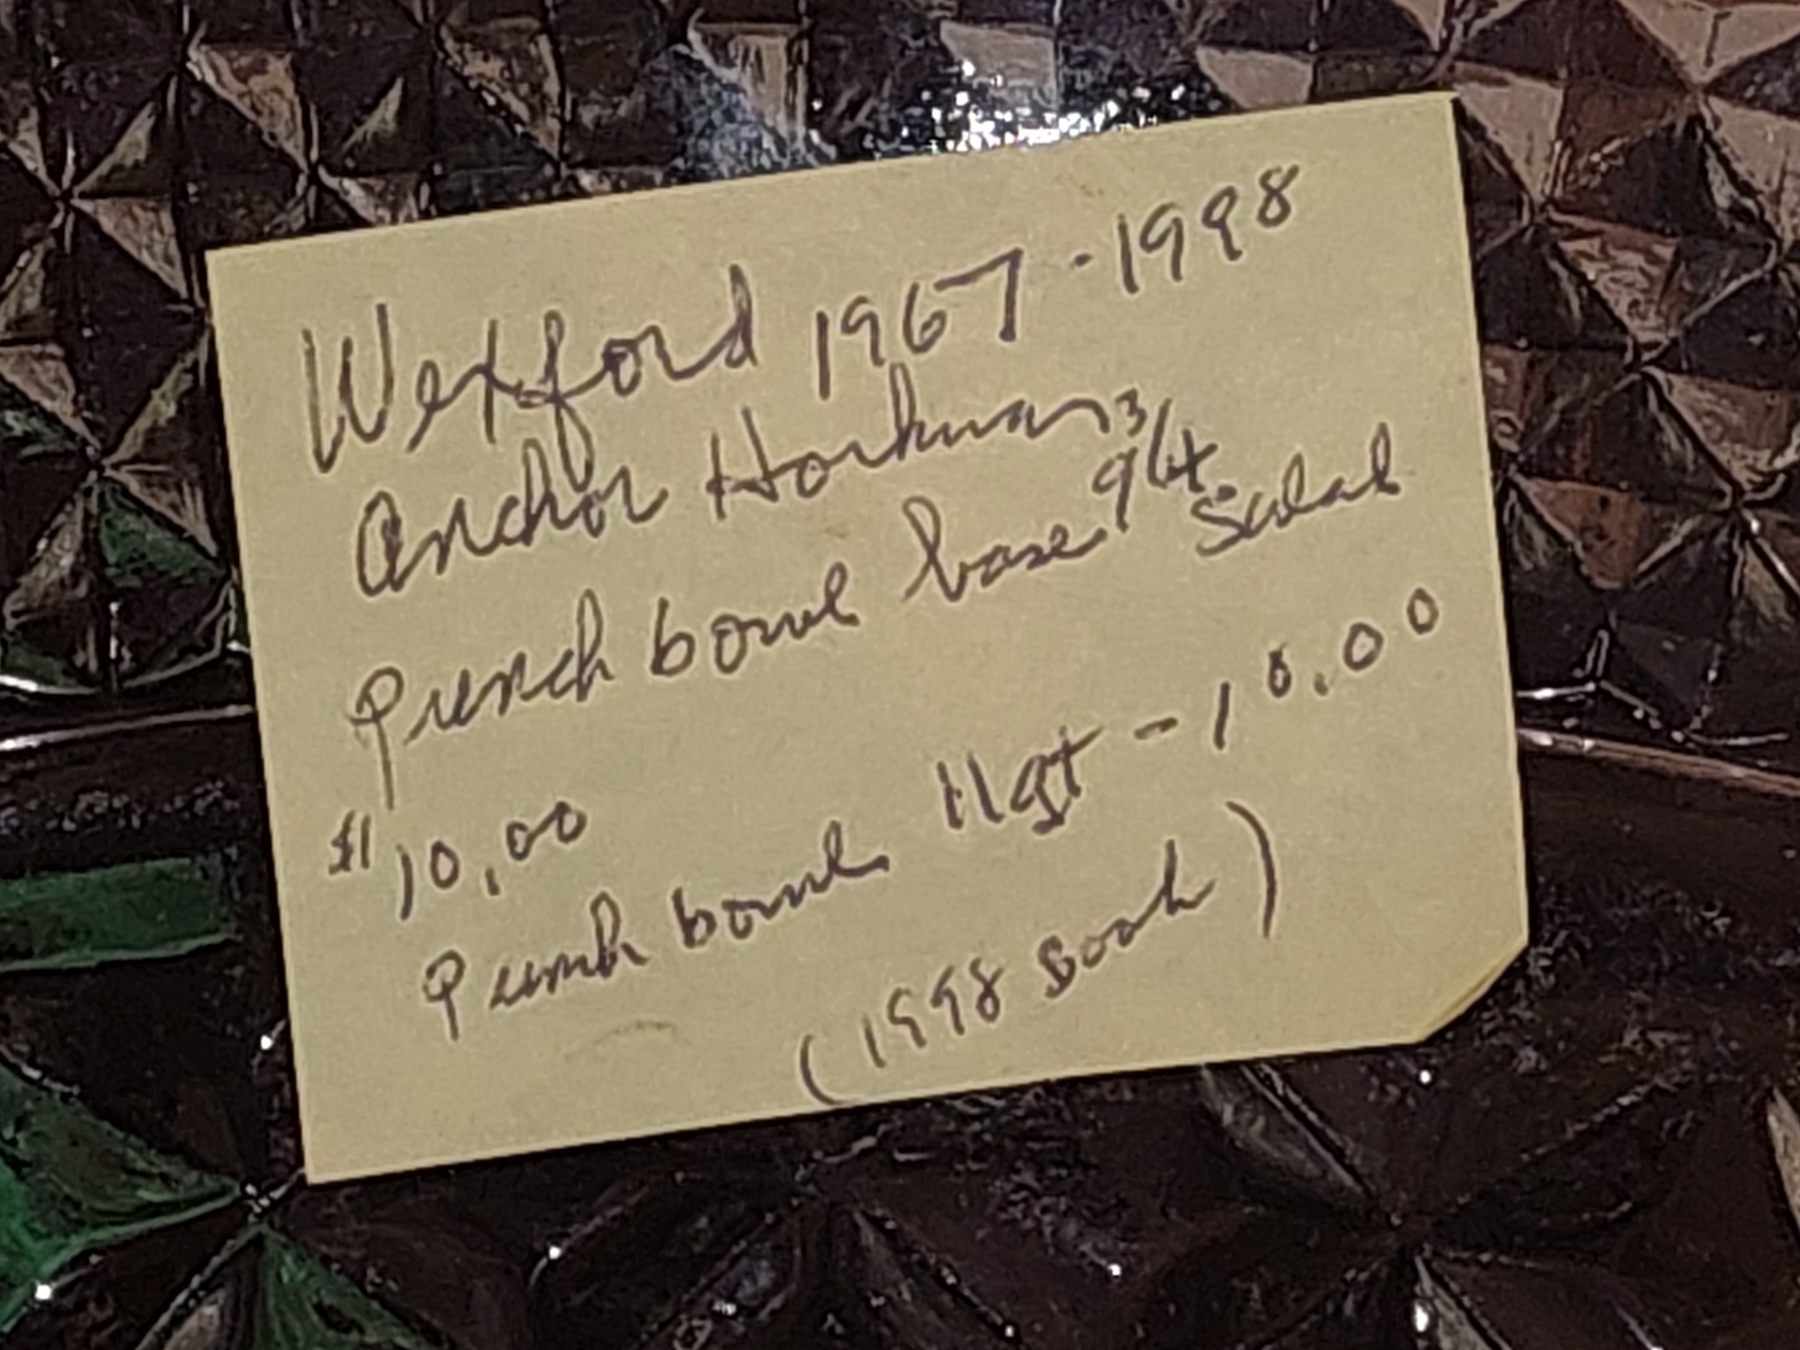 Wexford 1967-1998
Anchor Hockman
Punch bowl base 9 3/4 x. Salad
$10.00
Punch bowl. 11qt - 10.00
(1998 book)